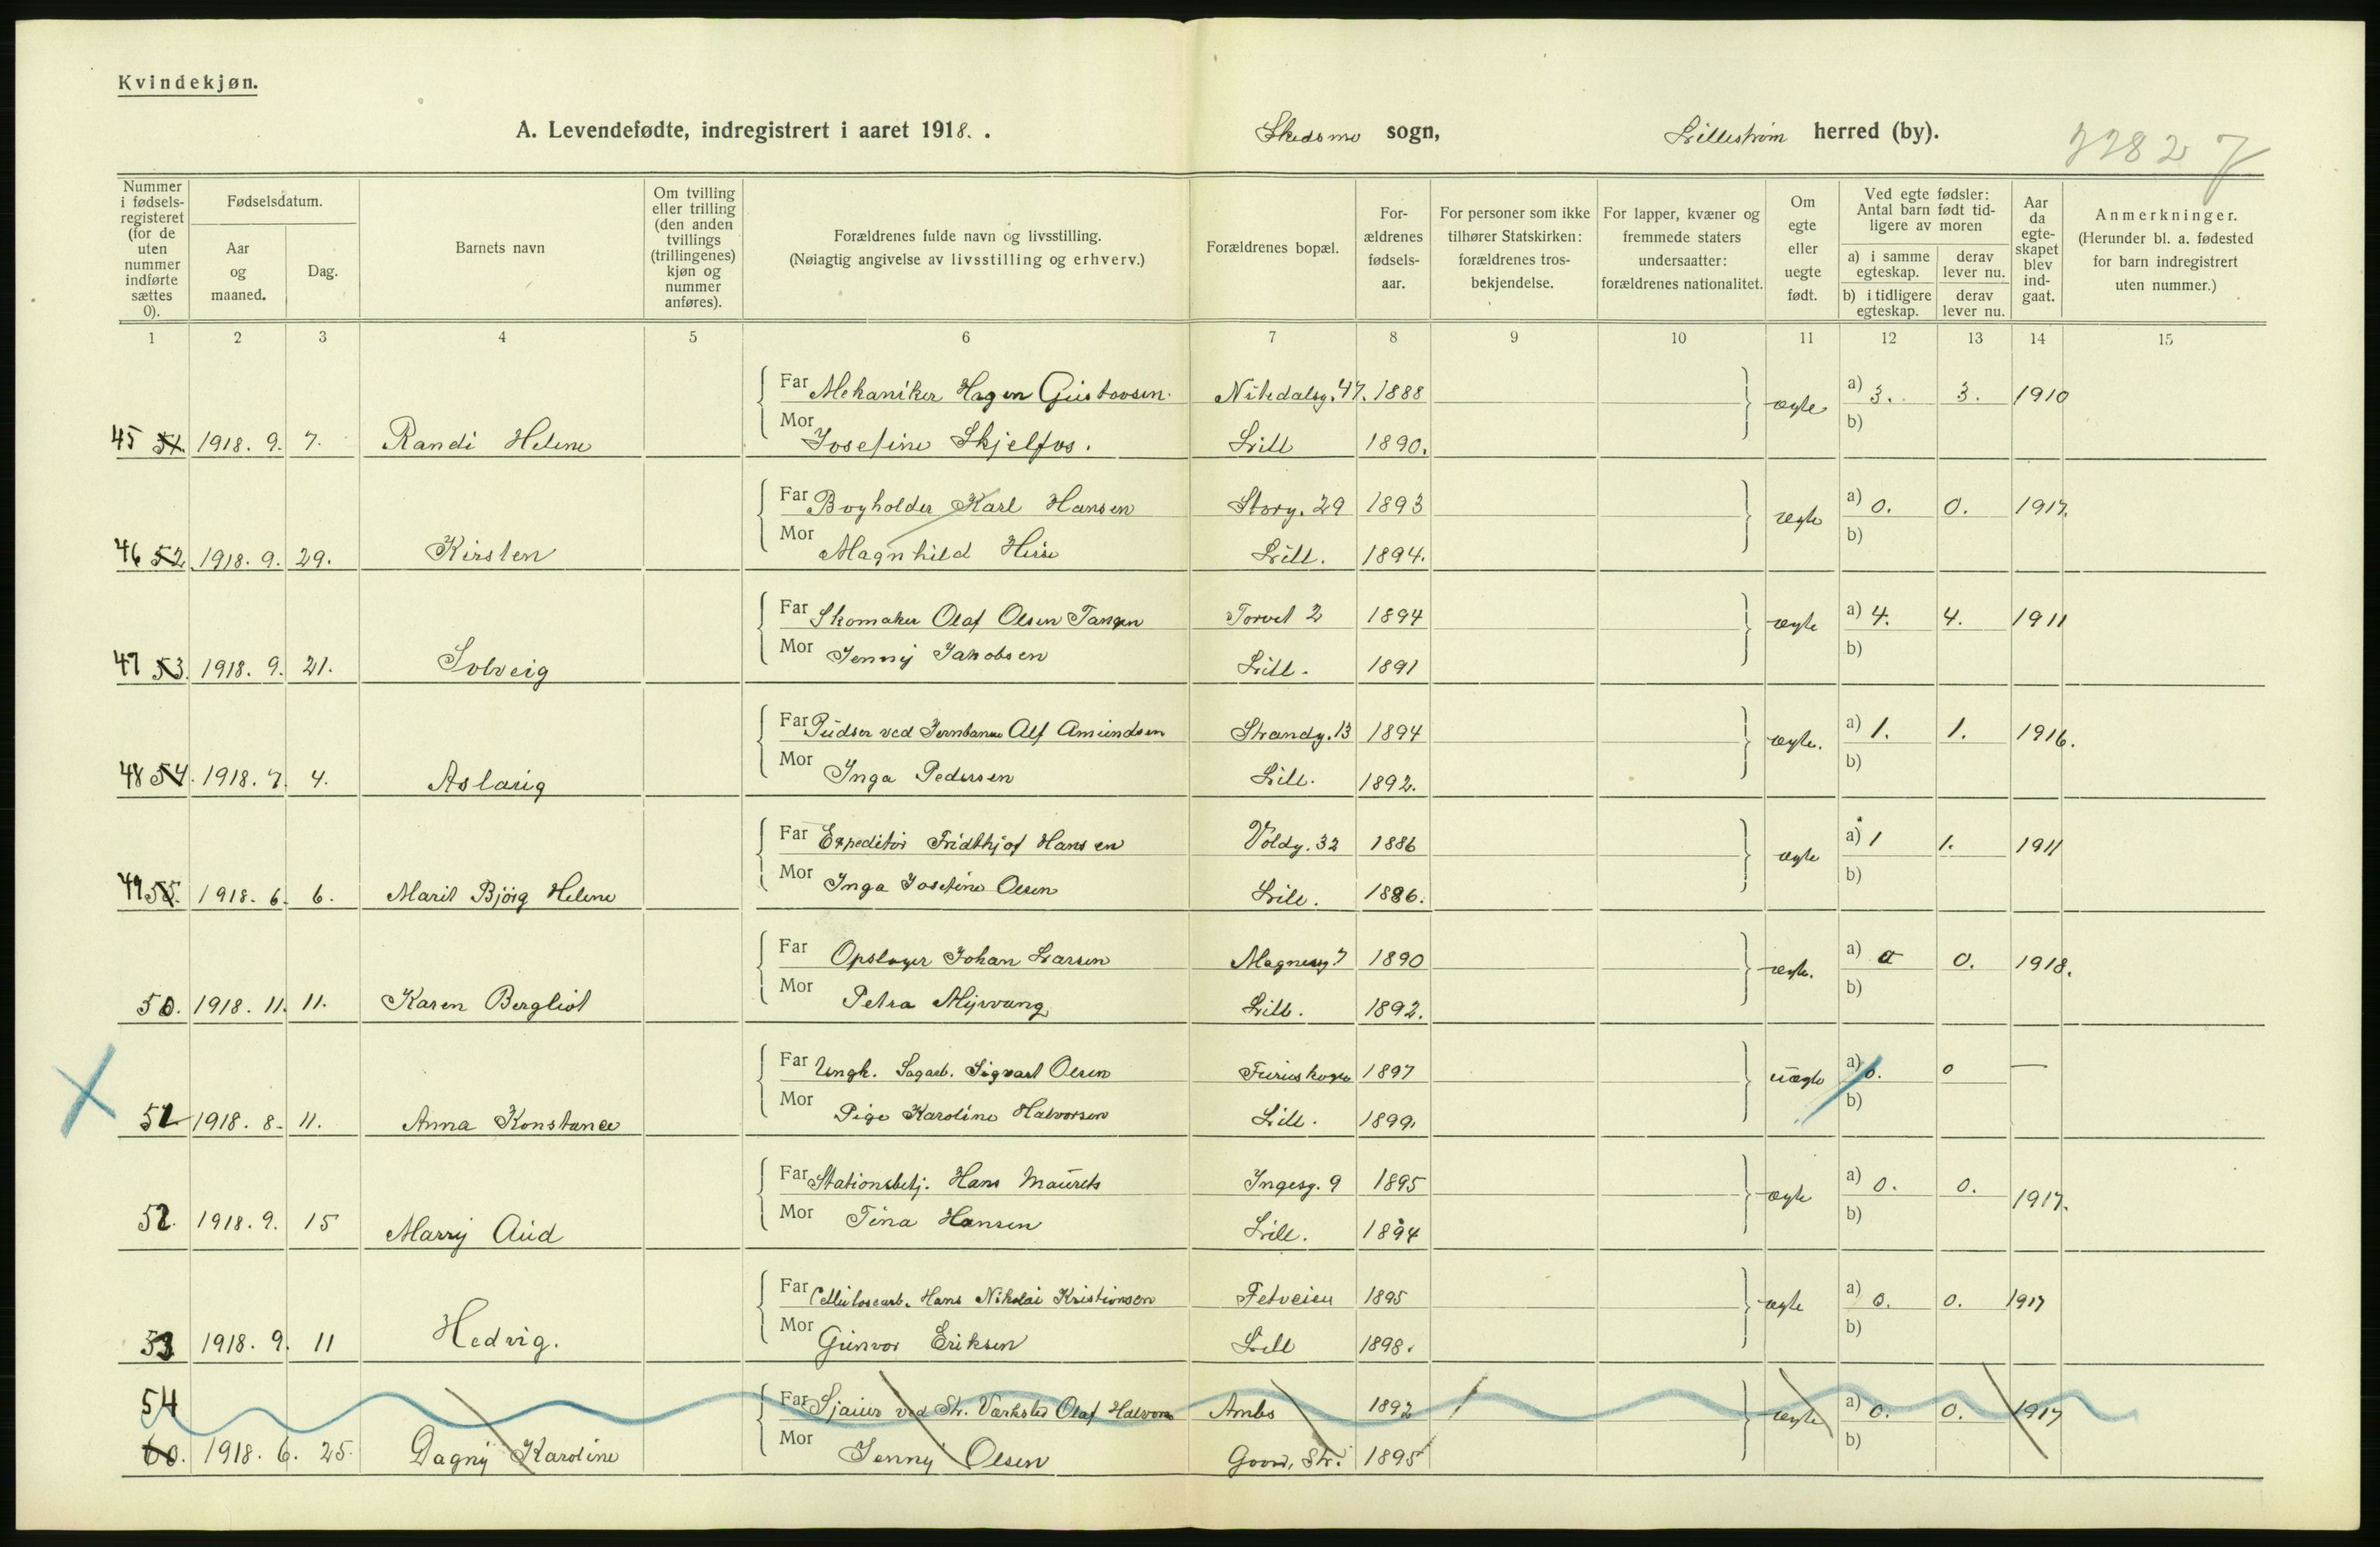 Kvindekjøn.
A. Levendefødte, indregistrert i aaret 1918. . Skedsmo sogn, Lillestrøm herred (by).
Nummer i fødselsregisteret (for de uten nummer indførte sættes 0).
Fødselsdatum.
Aar og maaned.
Dag.
Barnets navn
Om tvilling eller trilling (den anden tvillings (trillingenes) kjøn og nummer anføres).
Forældrenes fulde navn og livsstilling.
(Nøiagtig angivelse av livsstilling og erhverv.)
Forældrenes bopæl.
Forældrenes fødselsaar.
For personer som ikke tilhører Statskirken: forældrenes trosbekjendelse.
For lapper, kvæner og fremmede staters undersaatter: forældrenes nationalitet.
Om egte eller uegte født.
Ved egte fødsler: Antal barn født tidligere av moren
a) i samme egteskap.
derav lever nu.
b) i tidligere egteskap.
derav lever nu.
Aar da egteskapet blev indgaat.
Anmerkninger.
(Herunder bl. a. fødested for barn indregistrert uten nummer.)
1 2 3 4 5 6 7 8 9 10 11 12 13 14 15
Far Mekaniker Hagen Gustavsen. Nitedalsg. 47. 1888 ægte a) 3. 3. 1910
45 51 1918. 9. 7. Randi Helene Mor Josefine Skjelfos. Lill 1890. b)
Far Bogholder Karl Hansen Storg. 29 1893 ægte a) 0. 0. 1917.
46 52 1918. 9. 29. Kirsten Mor Magnhild Lill. 1894. b)
Far Skomaker Olaf Olsen Tangen Torvet 2 1894 ægte a) 4. 4. 1911
47 53. 1918. 9. 21. Solveig Mor Jenny Jakobsen Lill. 1891 b)
Far Pudser ved Jernbanen Alf Amundsen Strandg. 13 1894 ægte. a) 1. 1. 1916.
48 54. 1918. 7. 4. Aslaug Mor Inga Pedersen Lill. 1892. b)
Far Expeditør Fridthjof Hansen Voldg. 32 1886 ægte a) 1 1. 1911
49 55. 1918. 6. 6. Marit Bjørg Helene Mor Inga Josefine Olsen Lill. 1886. b)
Far Opsløger Johan Larsen Magnesg 7 1890 ægte. a) 0 0. 1918.
50. 1918. 11. 11. Karen Bergliot Mor Petra Myrvang Lill. 1892. b)
Far Ungk. Sagarb. Sigvart Olsen 1897 uægte a) 0. 0 —
51 1918. 8. 11. Anna Konstance Mor Pige Karoline Halvorsen Lill. 1899. b)
Far Stationsbetj. Hans Maurets Ingesg. 9 1895 ægte a) 0. 0. 1917.
52. 1918. 9. 15 Marry Aud Mor Tina Hansen Lill. 1894 b)
Far Cellulosearb. Hans Nikolai Kristiansen Fetveien 1895 ægte a) 0. 0. 1917
53 1918. 9. 11 Hedvig. Mor Gunvor Eriksen Lill 1898. b)
54 Far ved Str. Værksted Olaf Halvorsen 1892 ægte a) 0. 0. 1917
60. 1918. 6. 25. Dagny Karoline Mor Jenny Olsen Str. 1895 b)